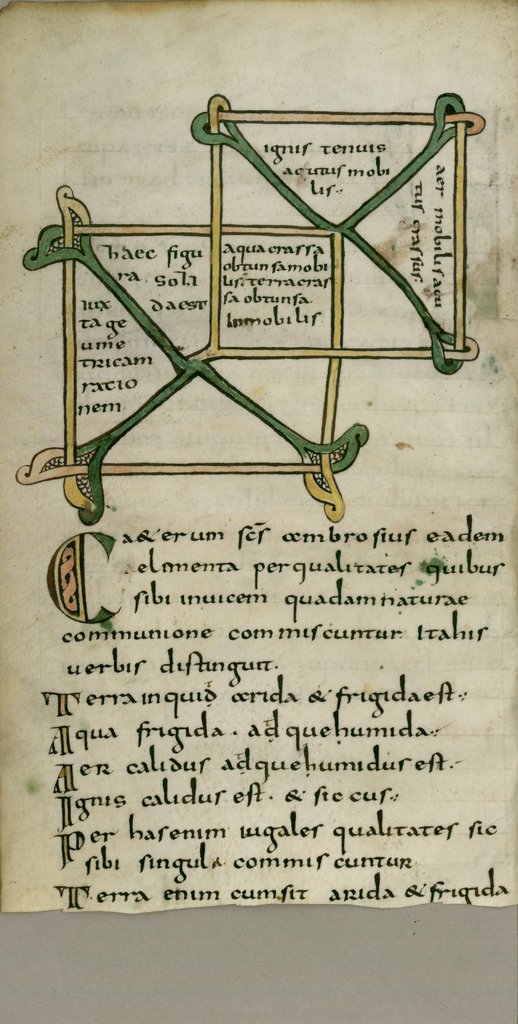 ignis tenuis
acutus mobi
lis
aer mobilis acu
tus crassus
haec figu
ra soli
da est
iux
ta ge
ume
tricam
ratio
nem
aqua crassa
obtunsa mobi
lis terra cras
sa obtunsa
inmobilis
Ca&erum scs ambrosius eadem
elimenta per qualitates quibus
sibi inuicem quadam naturae
communione commiscuntur. Italis
uerbis distinguit.
Terra inquid arida & frigida est.
Aqua frigida. adque humida.
Aer calidus adque humidus est.
Ignis calidus est. & siccus.
Per has enim iugales qualitates sic
sibi singula commiscuntur
Terra enim cum sit arida & frigida